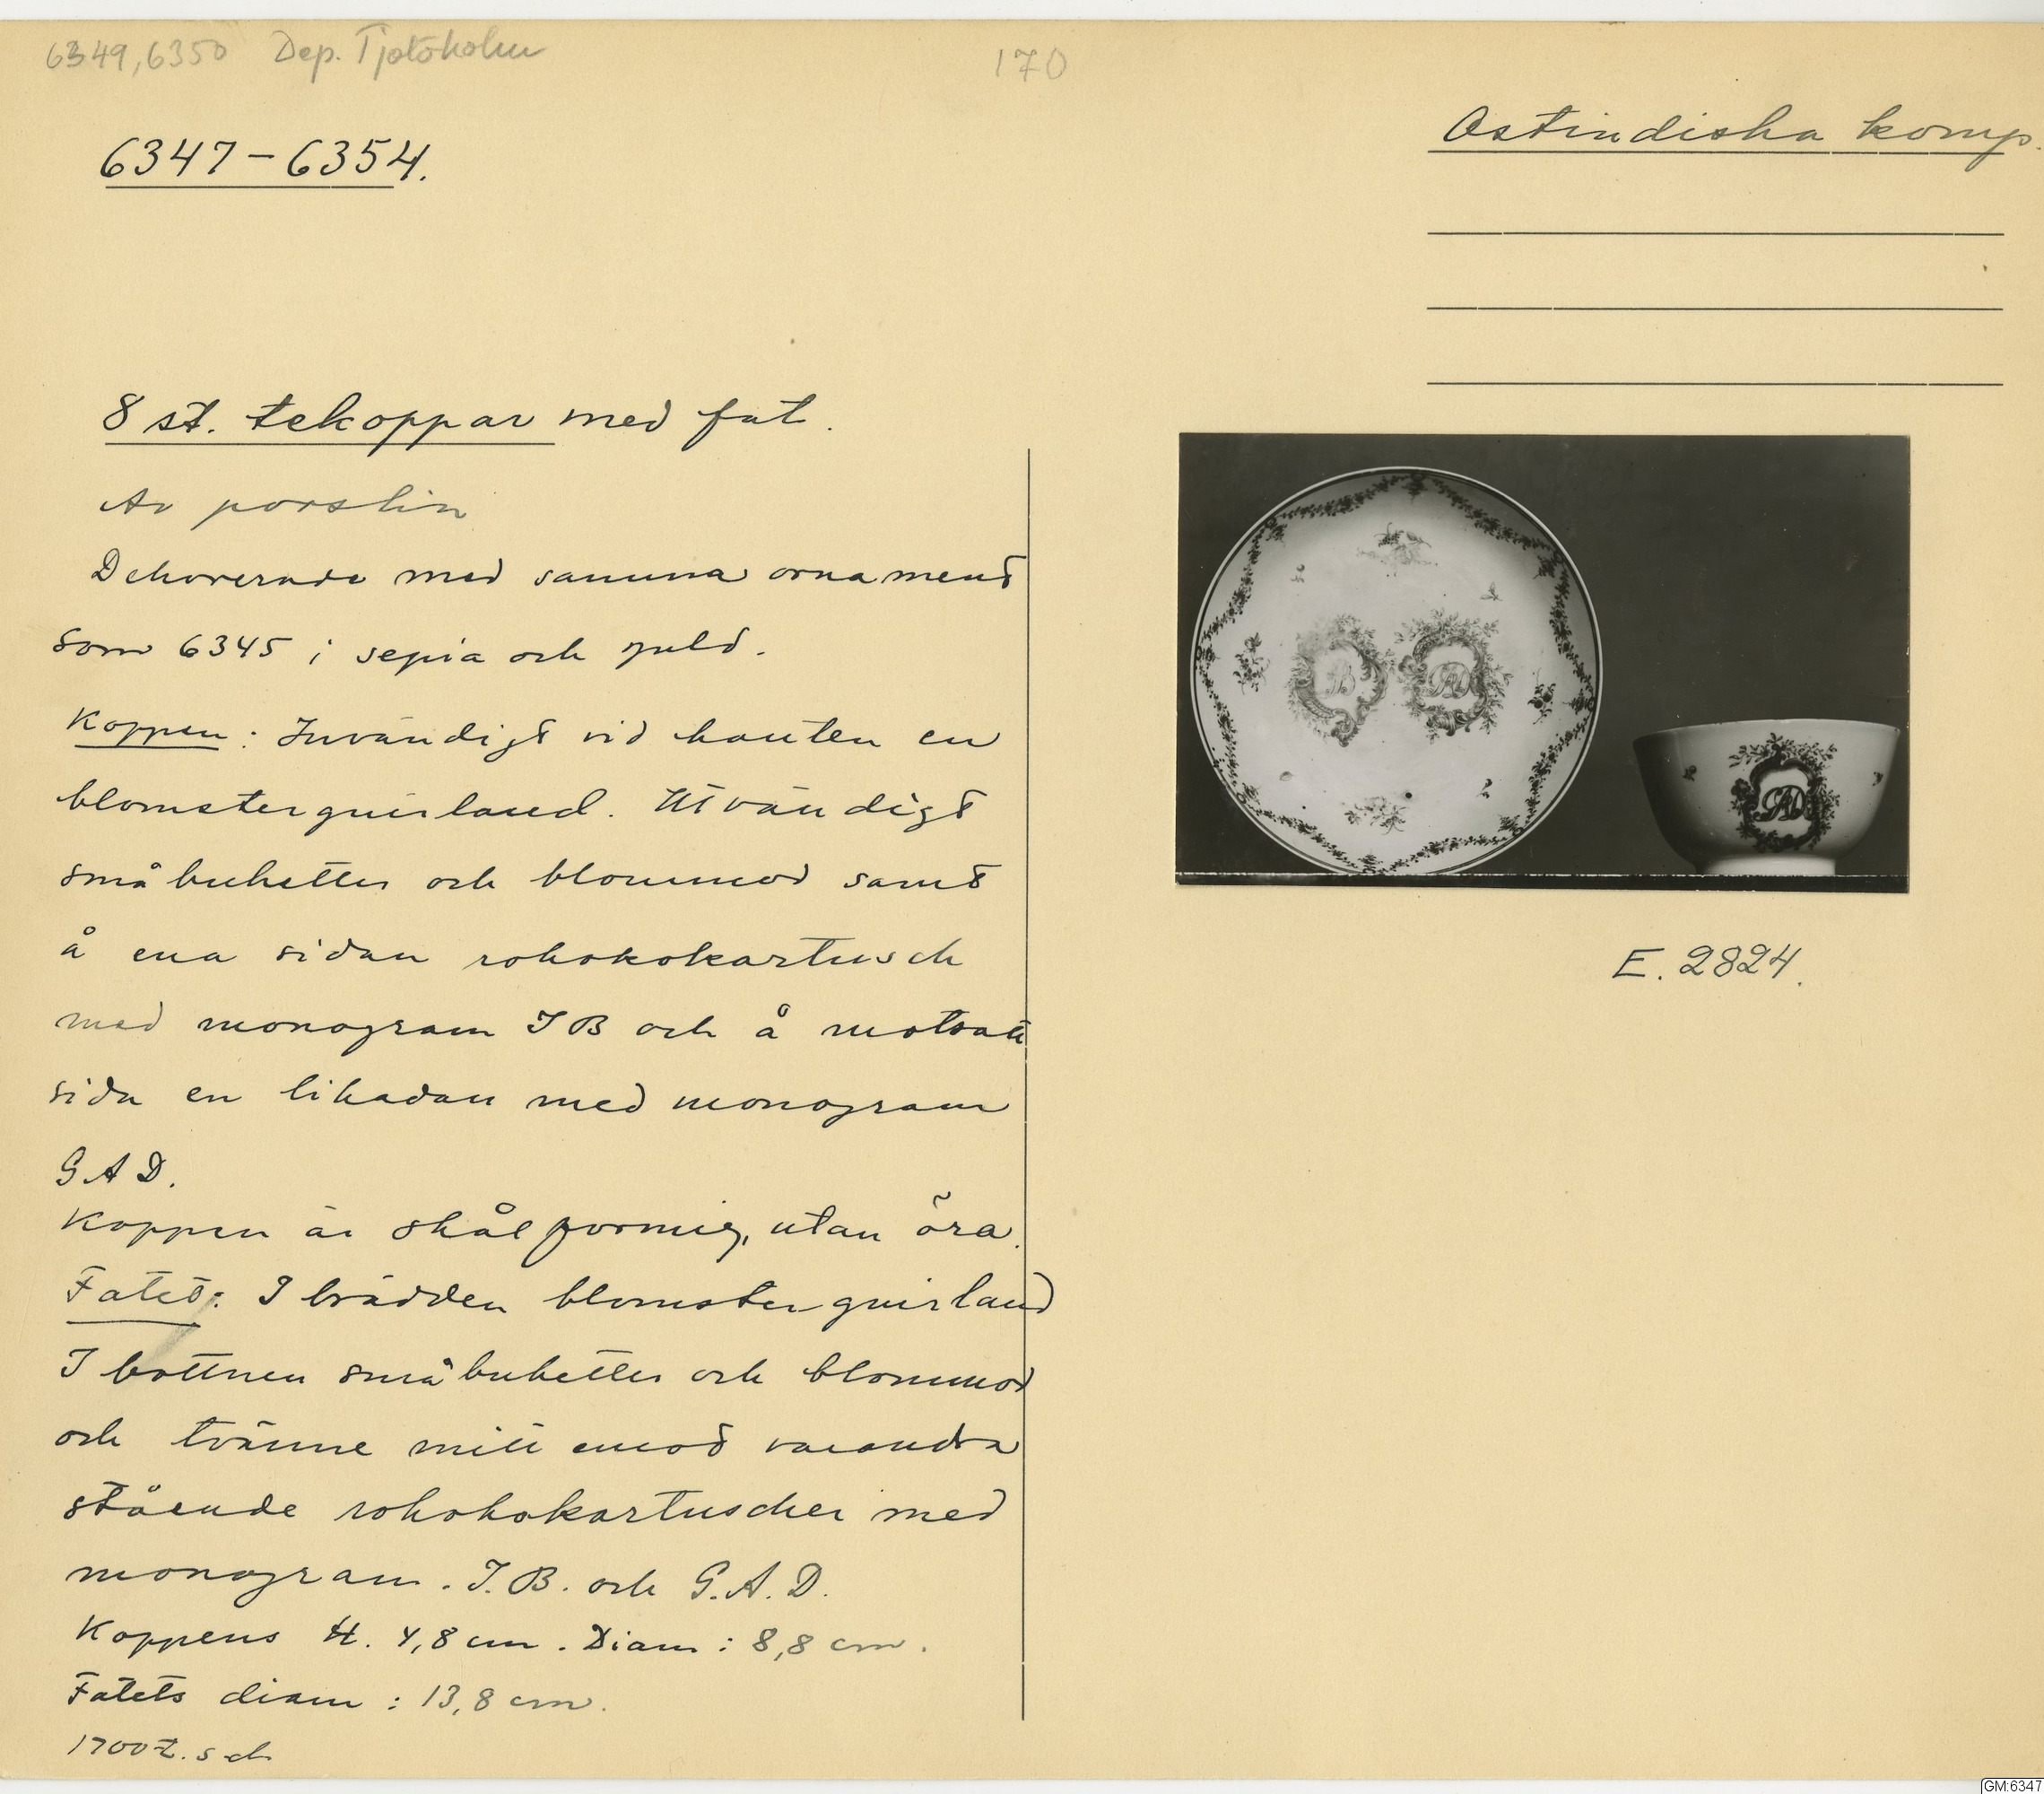 6349, 6350 Dep. Tjolöholm
170
6347-6354.
Ostindiska komp.
8 st. tekoppar med fat.
Av porslin
Dekorerade med samma ornament
som 6345 i sepia och guld.
Koppen: Invändigt vid kanten en
blomsterguirland. Utvändigt
små buketter och blommor samt
å ena sidan rokokokartusch
med monogram IB och å motsatt
sida en likadan med monogram
GAD.
Koppen är skålformig, utan öra.
Fatet: I brädden blomsterguirland
I bottnen små buketter och blommor
och tvänne mitt emot varandra
stående rokokokartuscher med
monogram. I.B. och G.A.D.
Koppens H. 4,8 cm. Diam: 8,8 cm.
Fatets diam: 13,8 cm.
1700 t. sch
B
GAD
GAD
E. 2824.
GM:6347